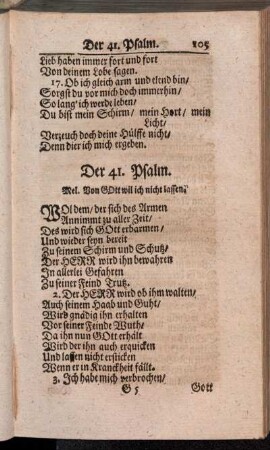 Der 41. Psalm. 105
Lieb haben immer fort und fort
Von deinem Lobe sagen.
17. Ob ich gleich arm und elend bin/
Sorgst du vor mich doch immerhin/
So lang' ich werde leben/
Du bist mein Schirm/ mein Hort/ mein
Licht/
Verzeuch doch deine Hülffe nicht/
Denn dier ich mich ergeben.
Der 41. Psalm.
Mel. Von GOtt wil ich nicht lassen/
WOl dem/ der sich des Armen
Annimmt zu aller Zeit/
Des wird sich GOtt erbarmen/
Und wieder seyn bereit
Zu seinem Schirm und Schutz/
Der HERR wird ihn bewahren
In allerlei Gefahren
Zu seiner Feind Trutz.
2. Der HERR wird ob ihm walten/
Auch seinem Haab und Guht/
Wird gnädig ihn erhalten
Vor seiner Feinde Wuth/
Da ihn nun GOtt erhält
Wird der ihn auch erquicken
Und lassen nicht ersticken
Wenn er in Kranckheit fällt.
3. Ich habe mich verbrochen/
G 5 Gott